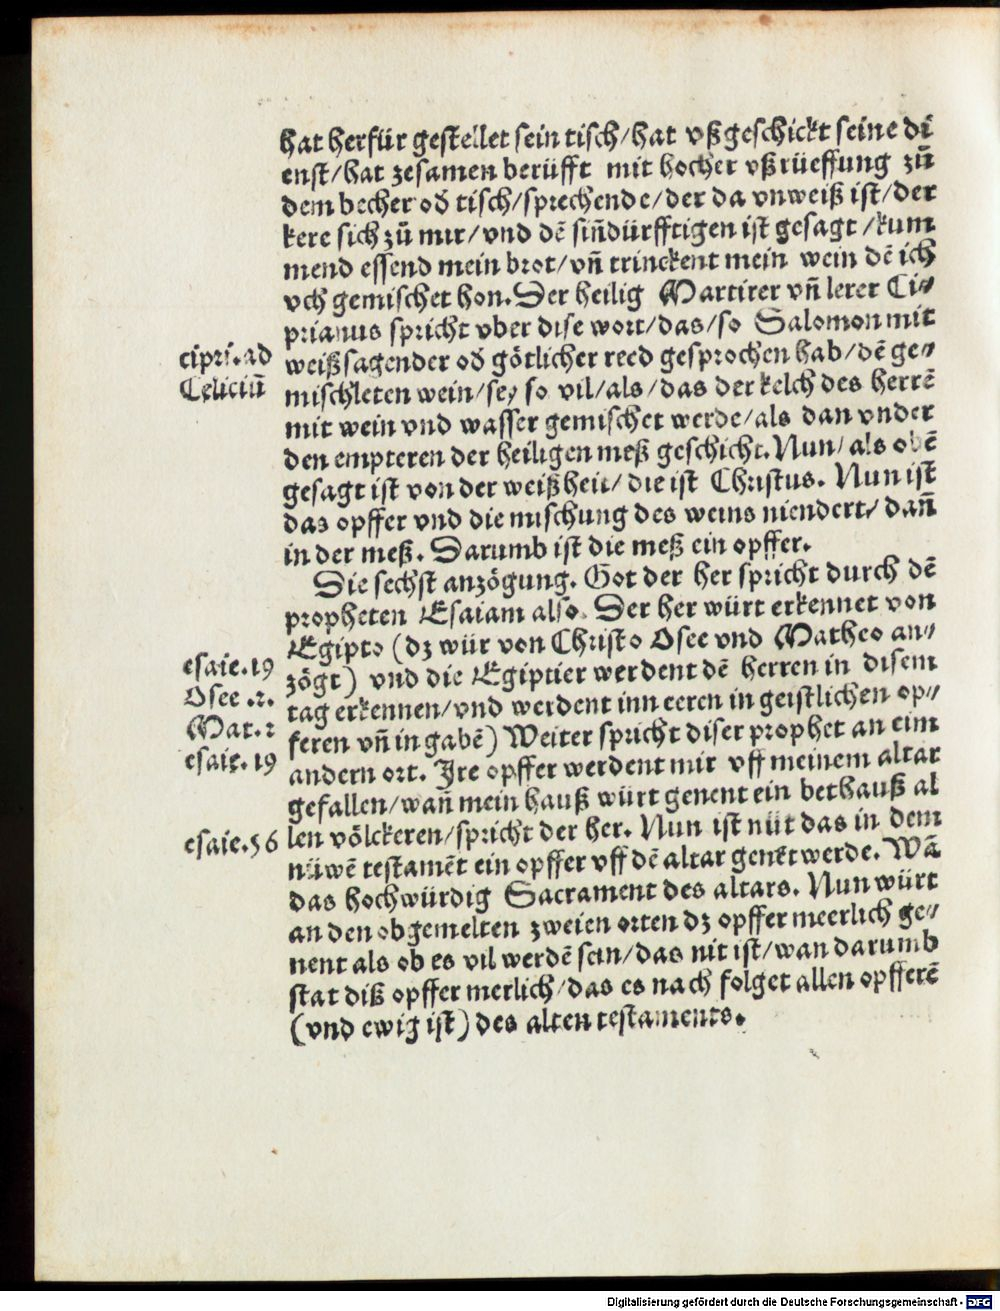 hat herfür gestellet sein tisch/hat vßgeschickt seine di
enst/hat zesamen berüfft mit hocher vßrüeffung zů
dem becher od̄ tisch/sprechende/der da vnweiß ist/der
kere sich zů mir/vnd dē siñdürfftigen ist gesagt/kum
mend essend mein brot/vñ trinckent mein wein dē ich
vch gemischet hon. Der heilig Martirer vñ lerer Ci⸗
prianus spricht vber dise wort/das/so Salomon mit
cipri. ad weißsagender od̄ götlicher reed gesprochen hab/dē ge⸗
Celiciū mischleten wein/sey so vil/als/das der kelch des herrē
mit wein vnd wasser gemischet werde/als dan vnder
den empteren der heiligen meß geschicht. Nun/als obē
gesagt ist von der weißheit/die ist Christus. Nun ist
das opffer vnd die mischung des weins niendert/dañ
in der meß. Darumb ist die meß ein opffer.
Die sechst anzögung. Got der her spricht durch dē
propheten Esaiam also. Der her würt erkennet von
Egipto (dz wür von Christo Osee vnd Matheo an⸗
esaie. 19 zögt) vnd die Egiptier werdent dē herren in disem
Osee .2. tag erkennen/vnd werdent inn eeren in geistlichen op⸗
Mat. 2 feren vñ in gabē) Weiter spricht diser prophet an eim
esaie. 19 andern ort. Ire opffer werdent mir vff meinem altar
gefallen/wañ mein hauß würt genent ein bethauß al
esaie. 56 len völckeren/spricht der her. Nun ist nüt das in dem
nüwē testamēt ein opffer vff dē altar genēt werde. Wā
das hochwürdig Sacrament des altars. Nun würt
an den obgemelten zweien orten dz opffer meerlich ge⸗
nent als ob es vil werdē sein/das nit ist/wan darumb
stat diß opffer merlich/das es nach folget allen opfferē
(vnd ewig ist) des alten testaments.
Digitalisierung gefördert durch die Deutsche Forschungsgemeinschaft - DFG